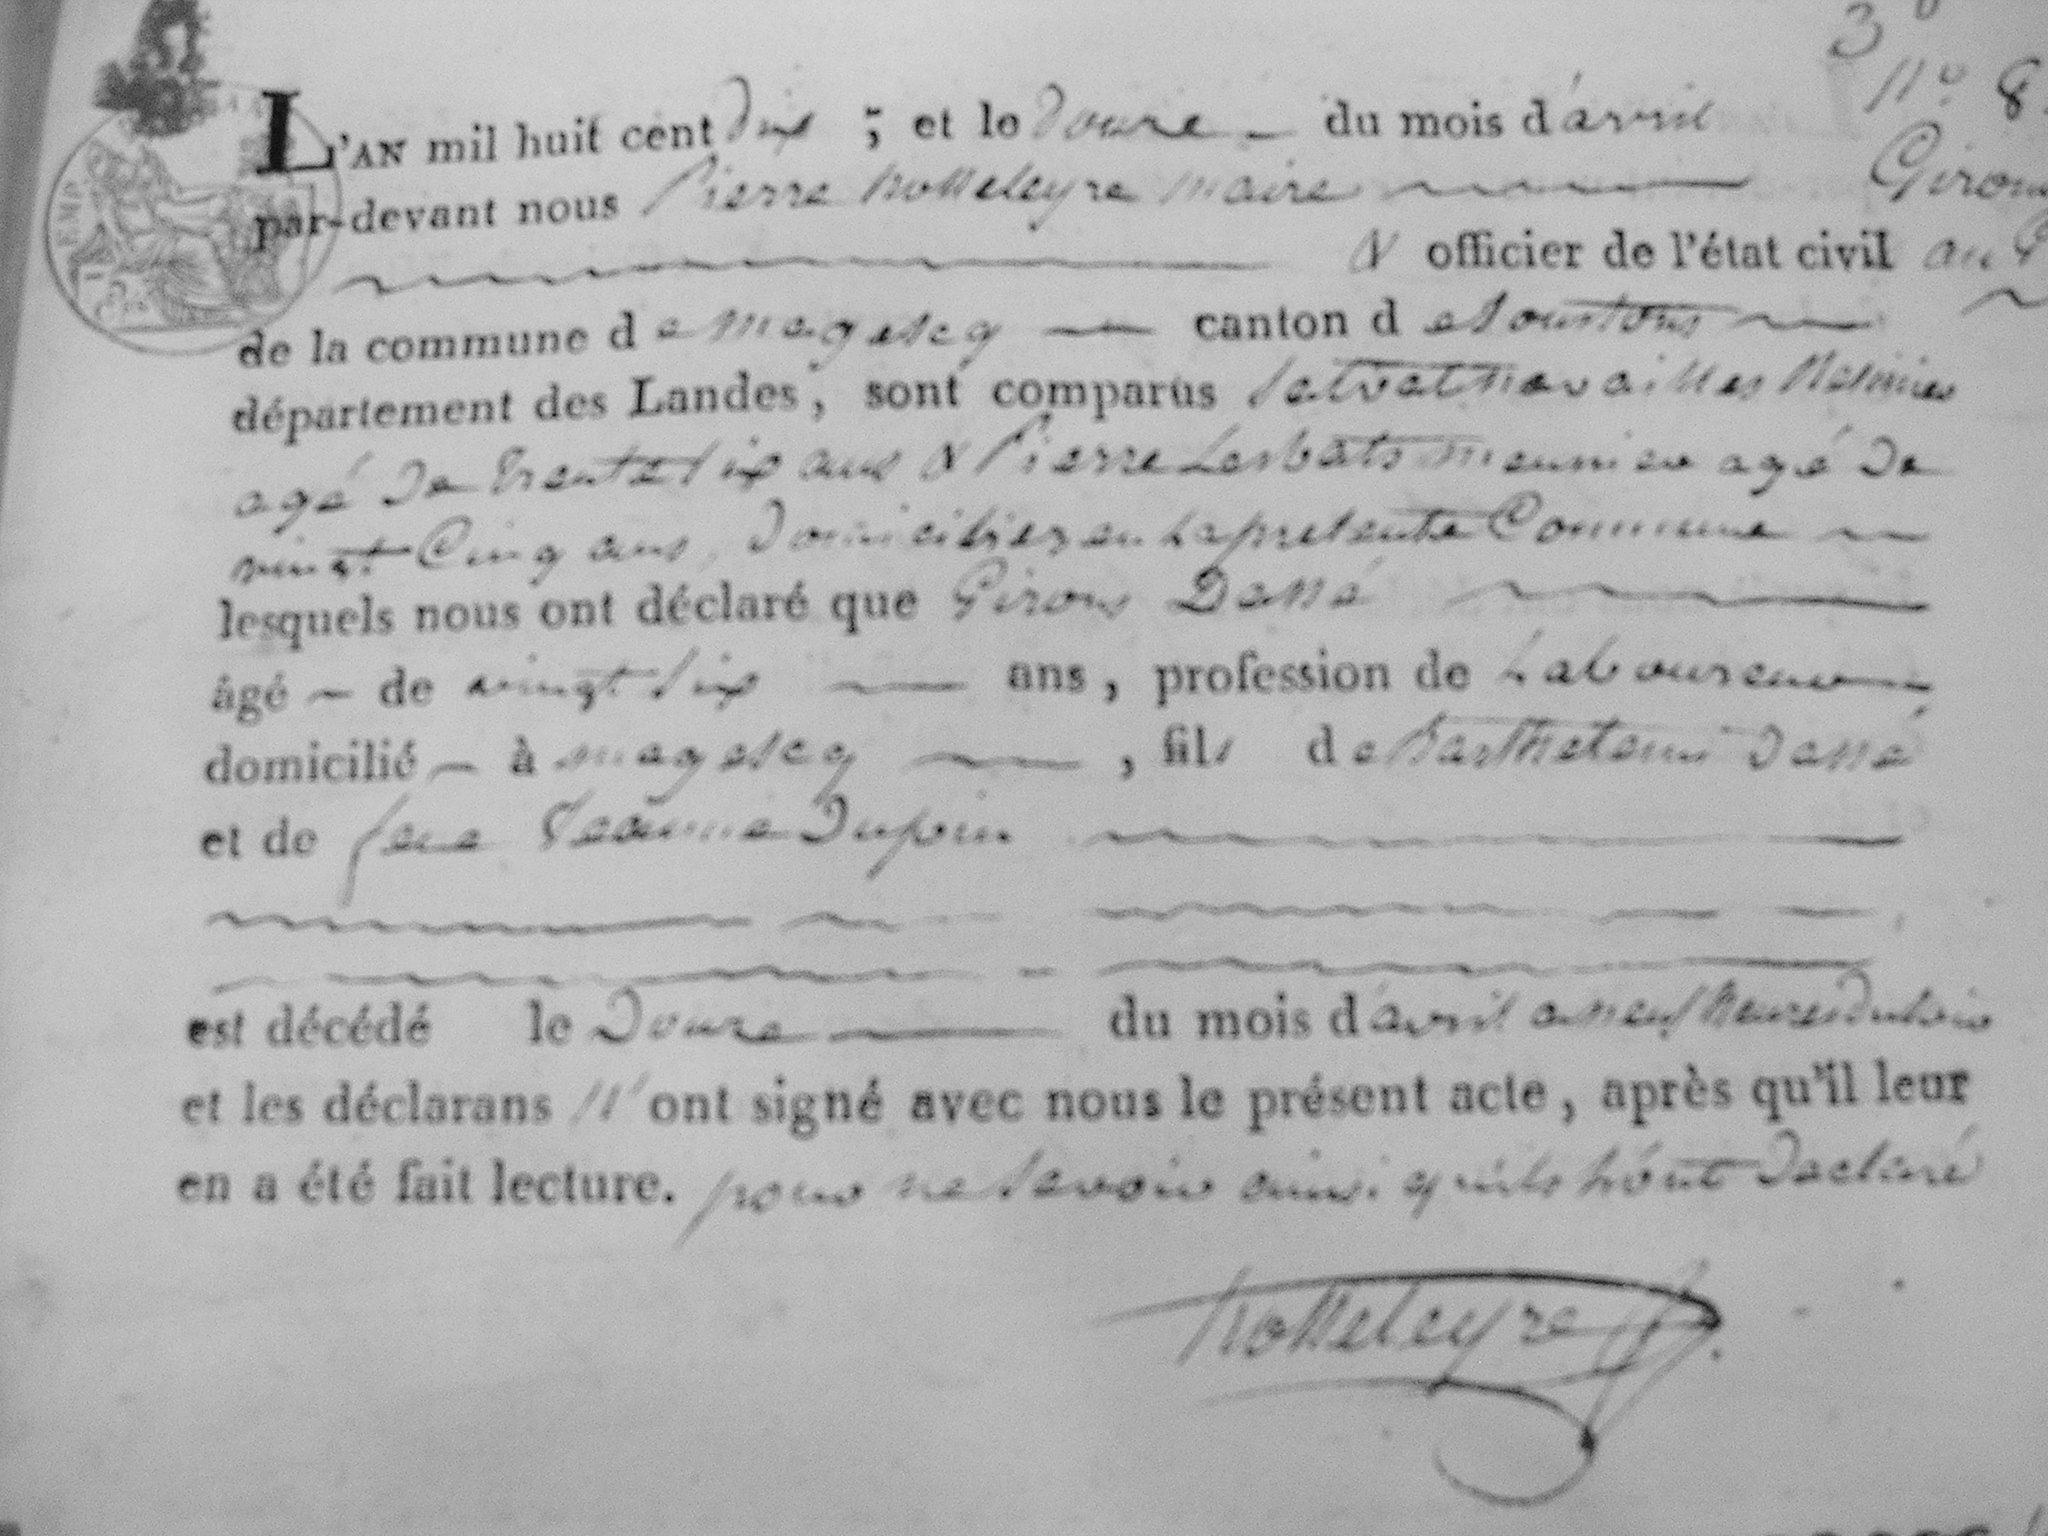 3º
L'AN mil huit cent dix ; et le douze du mois d'avril Nº 8
par-devant nous Pierre maire Girons
& officier de l'état civil au
de la commune de magescq canton de Soustons
département des Landes, sont comparus Salvat Navailles
agé de trente six ans & Pierre Lesbats meunier agé de
vingt Cinq ans, domiciliez en la presente Commune
lesquels nous ont déclaré que Girons Dassé
âgé de vingt six ans, profession de Laboureur
domicilié à magescq, fils de Barthelemi dassé
et de feue Jeanne Dupin
est décédé le douze du mois d'avril a neuf heures du soir
et les déclarans n'ont signé avec nous le présent acte, après qu'il leur
en a été fait lecture. pour ne savoir ainsi qu'ils h'ont declaré